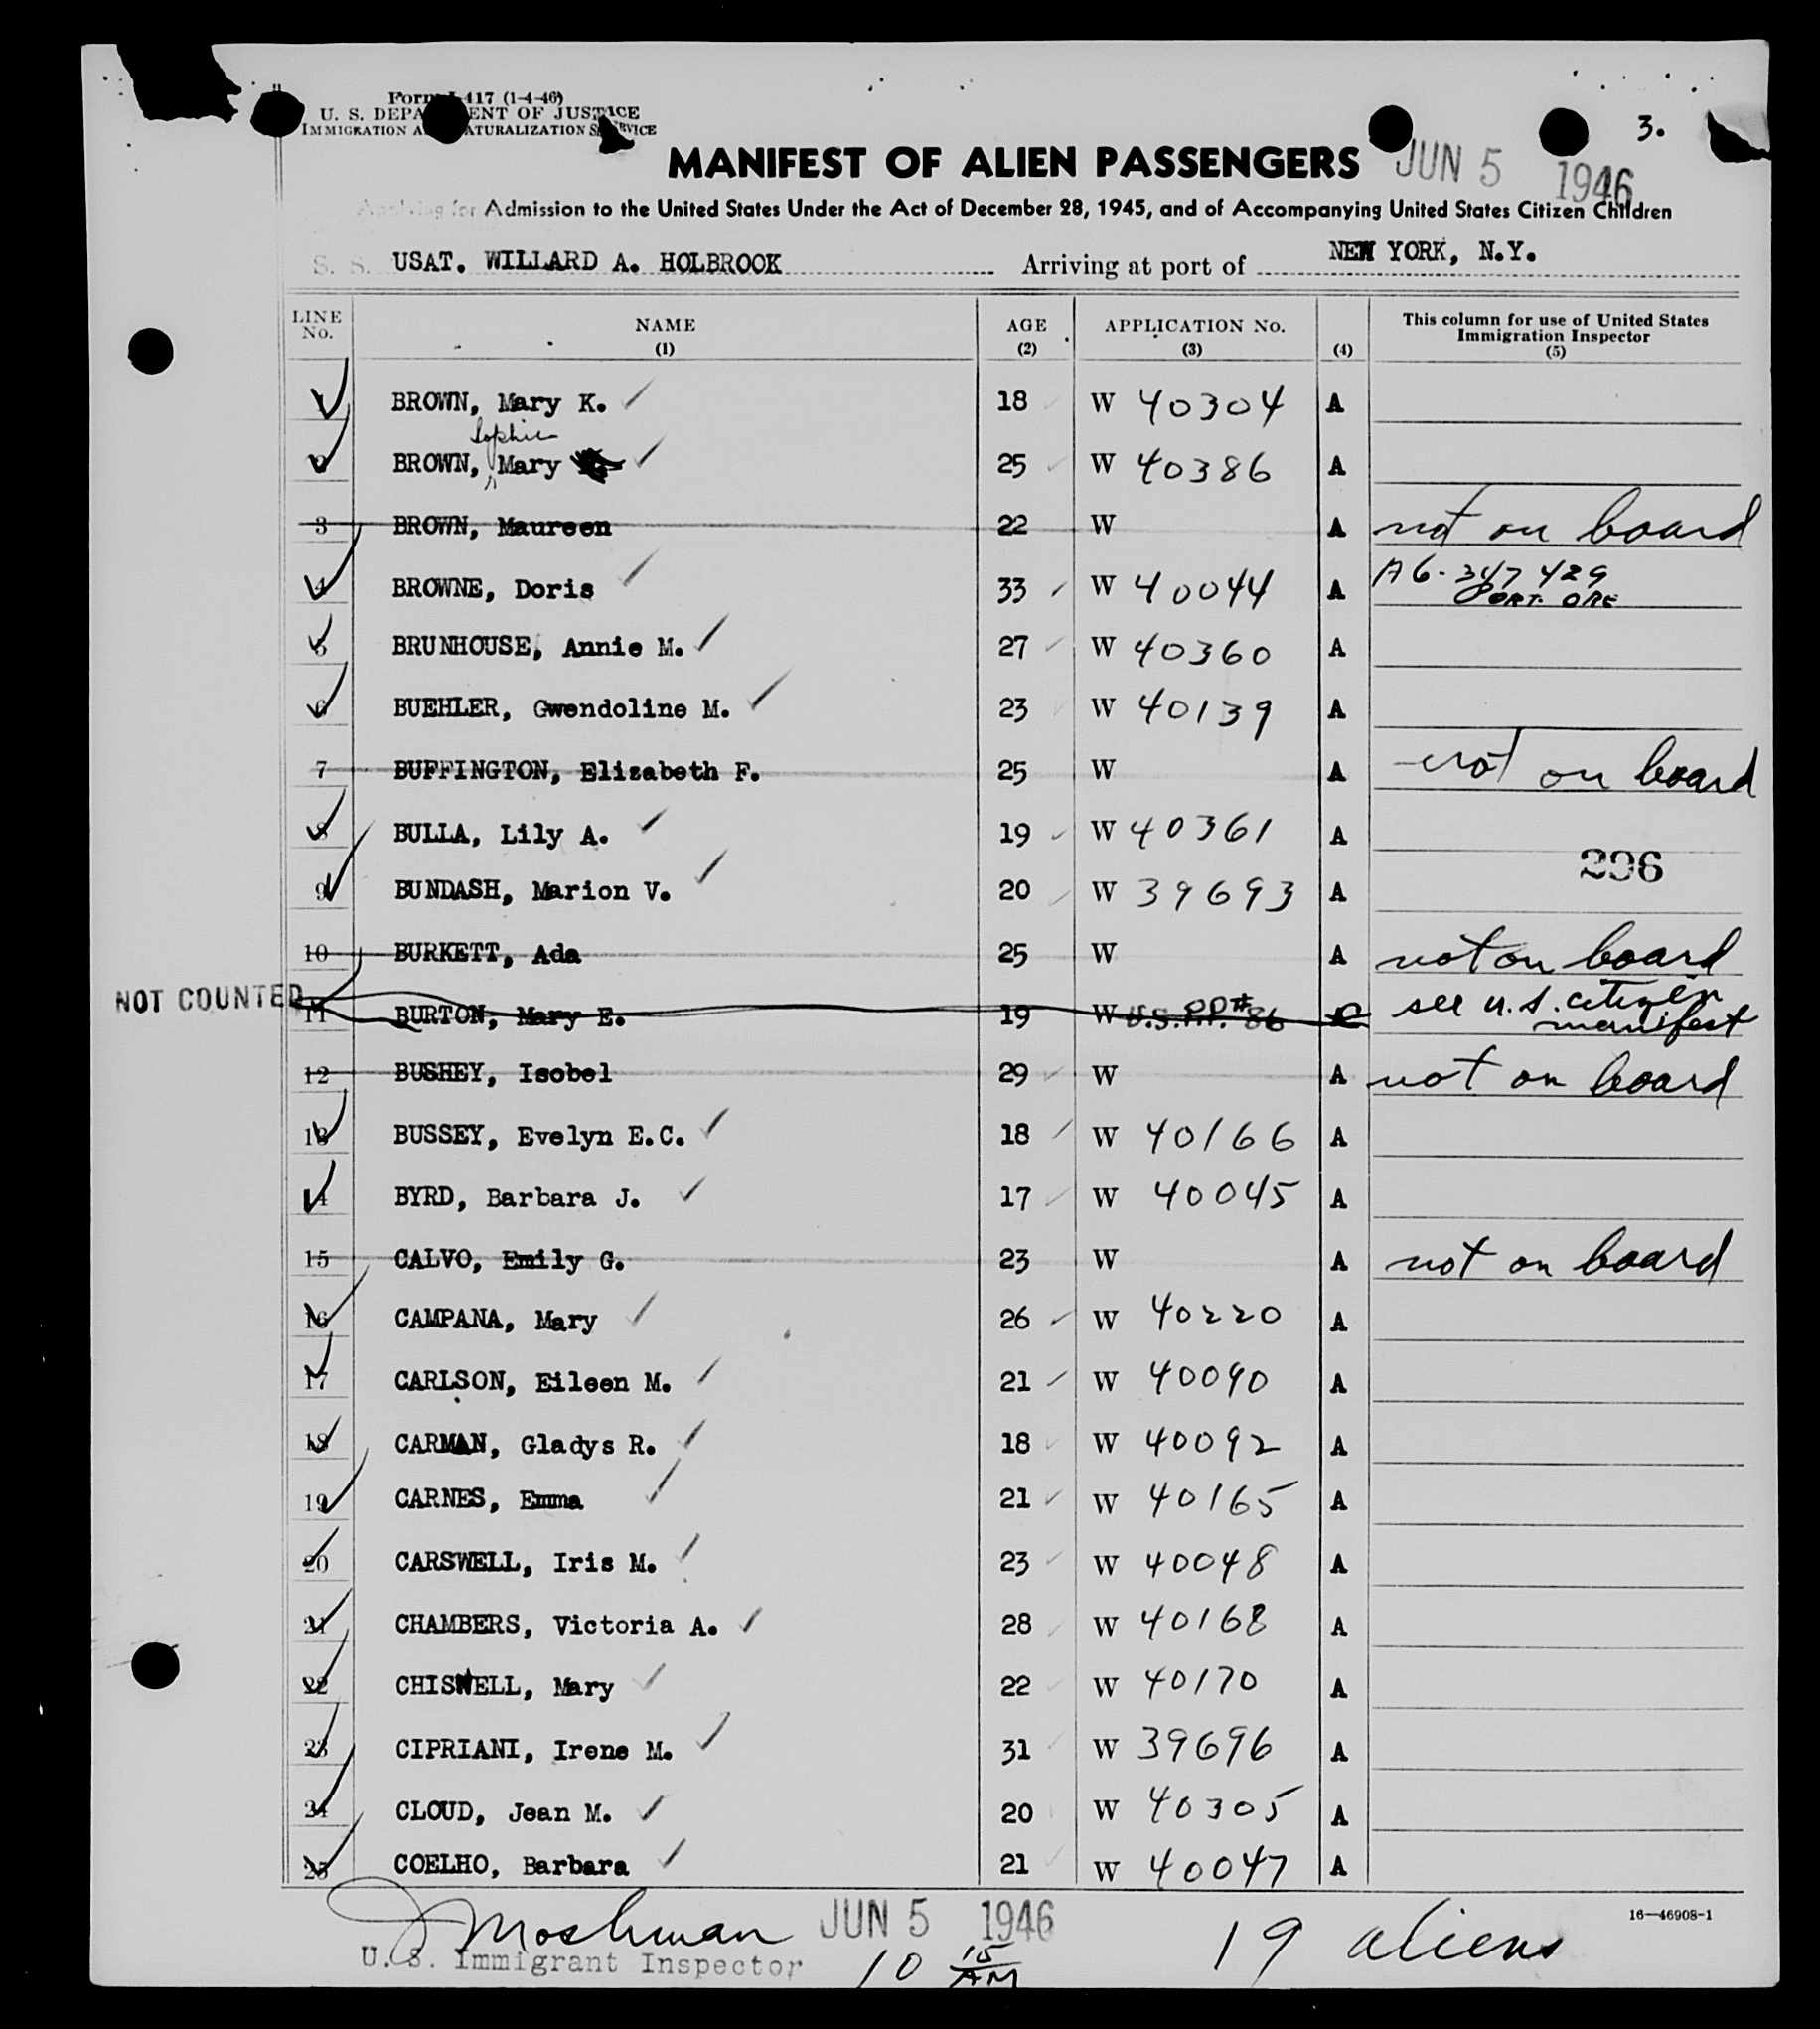 Form I-417 (1-4-46)
U. S. DEPARTMENT OF JUSTICE
IMMIGRATION AND NATURALIZATION SERVICE
3.
MANIFEST OF ALIEN PASSENGERS
JUN 5 1946
Applying for Admission to the United States Under the Act of December 28, 1945, and of Accompanying United States Citizen Children
S. S. USAT. WILLARD A. HOLBROOK Arriving at port of NEW YORK, N.Y.
LINE No. NAME (1) AGE (2) APPLICATION No. (3) (4) This column for use of United States Immigration Inspector (5)
1 BROWN, Mary K. 18 W 40304 A
Sophie
2 BROWN, Mary 25 W 40386 A
3 BROWN, Maureen 22 W A not on board
4 BROWNE, Doris 33 W 40044 A A6-347429
PORT. ORE
5 BRUNHOUSE, Annie M. 27 W 40360 A
6 BUEHLER, Gwendoline M. 23 W 40139 A
7 BUFFINGTON, Elizabeth F. 25 W A not on board
8 BULLA, Lily A. 19 W 40361 A
296
9 BUNDASH, Marion V. 20 W 39693 A
10 BURKETT, Ada 25 W A not on board
NOT COUNTED 11 BURTON, Mary E. 19 W U.S. P.P. # 86 C see U.S. citizen manifest
12 BUSHEY, Isobel 29 W A not on board
13 BUSSEY, Evelyn E.C. 18 W 40166 A
14 BYRD, Barbara J. 17 W 40045 A
15 CALVO, Emily G. 23 W A not on board
16 CAMPANA, Mary 26 W 40220 A
17 CARLSON, Eileen M. 21 W 40090 A
18 CARMAN, Gladys R. 18 W 40092 A
19 CARNES, Emma 21 W 40165 A
20 CARSWELL, Iris M. 23 W 40048 A
21 CHAMBERS, Victoria A. 28 W 40168 A
22 CHISWELL, Mary 22 W 40170 A
23 CIPRIANI, Irene M. 31 W 39696 A
24 CLOUD, Jean M. 20 W 40305 A
25 COELHO, Barbara 21 W 40047 A
16—46908-1
J Moshman JUN 5 1946 19 aliens
U. S. Immigrant Inspector 10 15 AM